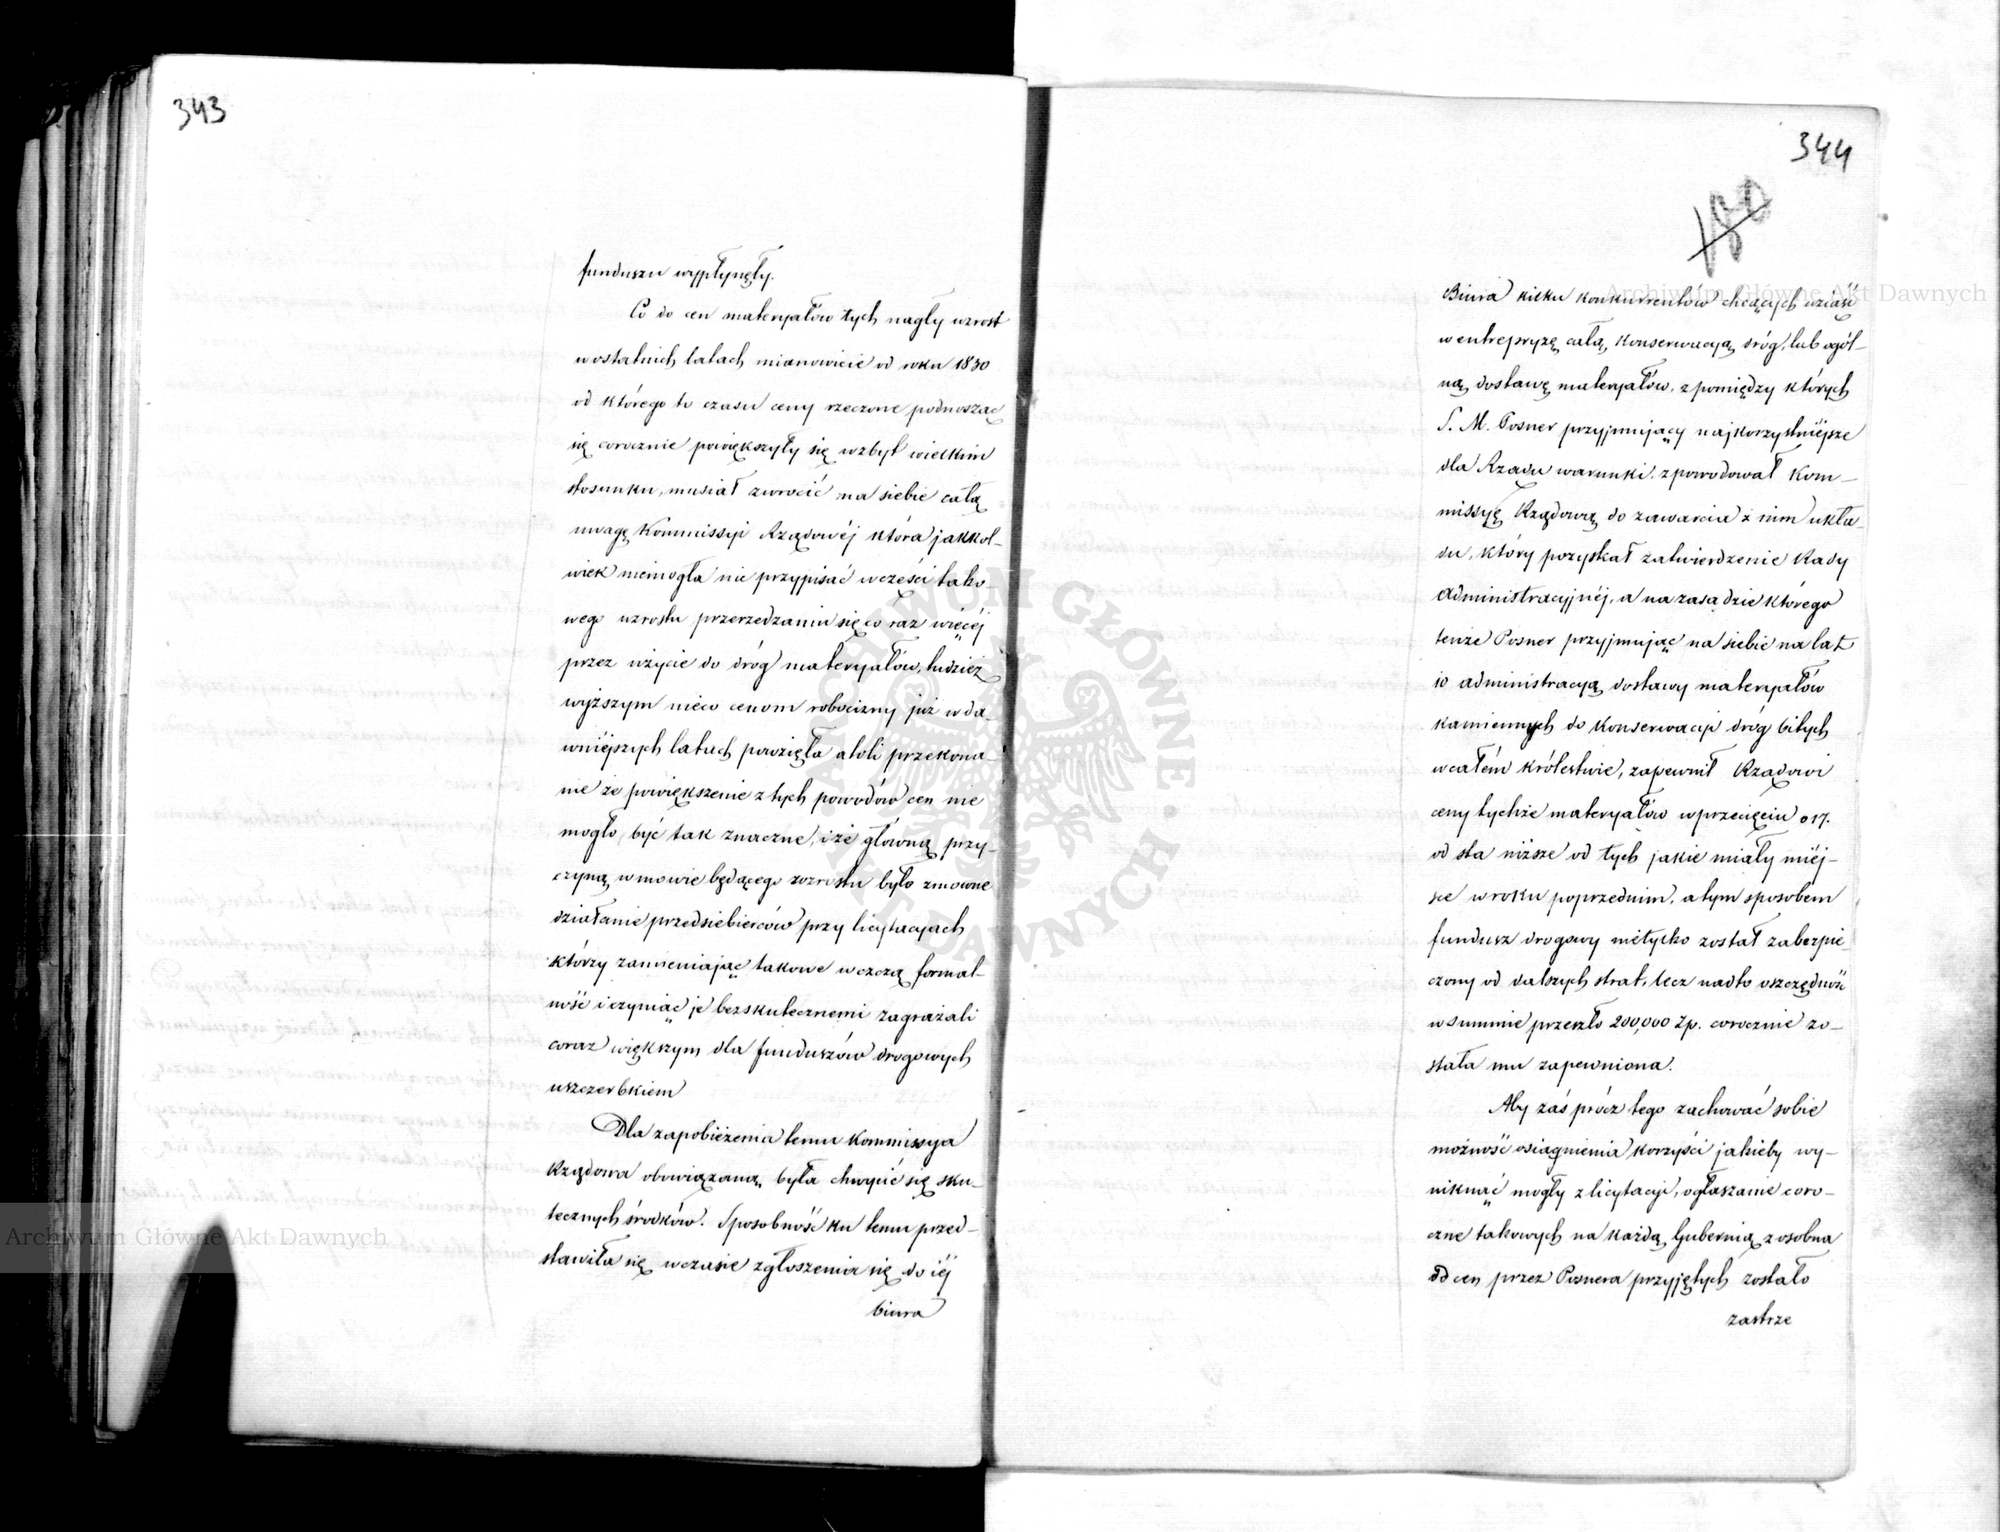 343
funduszu wypłynęły.
Co do cen materyałów tych nagły wzrost
w ostatnich latach mianowicie od roku 1830
od którego to czasu ceny rzeczone podnosząc
się corocznie powiększyły się w zbyt wielkim
stosunku, musiał zwrócić na siebie całą
uwagę Kommissyi Rządowéj która jakkol-
wiek niemogła nie przypisać w części tako-
wego wzrostu przerzedzaniu się co raz więcéj
przez użycie do dróg materyałów, tudzież
wyższym nieco cenom robocizny już w da-
wniéjszych latach powzięła atoli przekona-
nie że powiększenie z tych powodów cen nie
mogło być tak znaczne, i że główną przy-
czyną w mowie będącego wzrostu było zmowne
działanie przedsiebierców przy licytacyach
którzy zamieniając takowe w czczą formal-
ność i czyniąc je bezskutecznemi zagrażali
coraz większym dla funduszów drogowych
uszczerbkiem
Dla zapobieżenia temu Kommissya
Rządowa obowiązaną była chwycić się sku-
tecznych środków. Sposobność ku temu przed-
stawiła się w czasie zgłoszenia się do iéj
biura
344
180
Biura kilku konkurrentów chcących wziąść
w entrepryzę całą konserwacyą dróg, lub ogól-
ną dostawę materyałów, z pomiędzy których
S. M. Posner przyjmujący najkorzystniéjsze
dla Rządu warunki, spowodował Kom-
missyę Rządową do zawarcia z nim ukła-
du, który pozyskał zatwierdzenie Rady
Administracyjnéj, a na zasadzie którego
tenże Posner przyjmując na siebie na lat
10 administracyą dostawy materyałów
kamiennych do konserwacyi dróg bitych
w całém Królestwie, zapewnił Rządowi
ceny tychże materyałów w przecięciu o 17.
od sta niższe od tych jakie miały miéj-
sce w roku poprzednim, a tym sposobem
fundusz drogowy nietylko został zabezpie-
czony od dalszych strat, lecz nadto oszczędność
w summie przeszło 200,000 Zp. corocznie zo-
stała mu zapewniona.
Aby zaś prócz tego zachować sobie
możność osiągnienia korzyści jakieby wy-
niknąć mogły z licytacyi, ogłaszanie coro-
czne takowych na każdą Gubernią z osobna
od cen przez Posnera przyjętych zostało
zastrze
Archiwum Główne Akt Dawnych
Archiwum Główne Akt Dawnych
ARCHIWUM GŁÓWNE AKT DAWNYCH